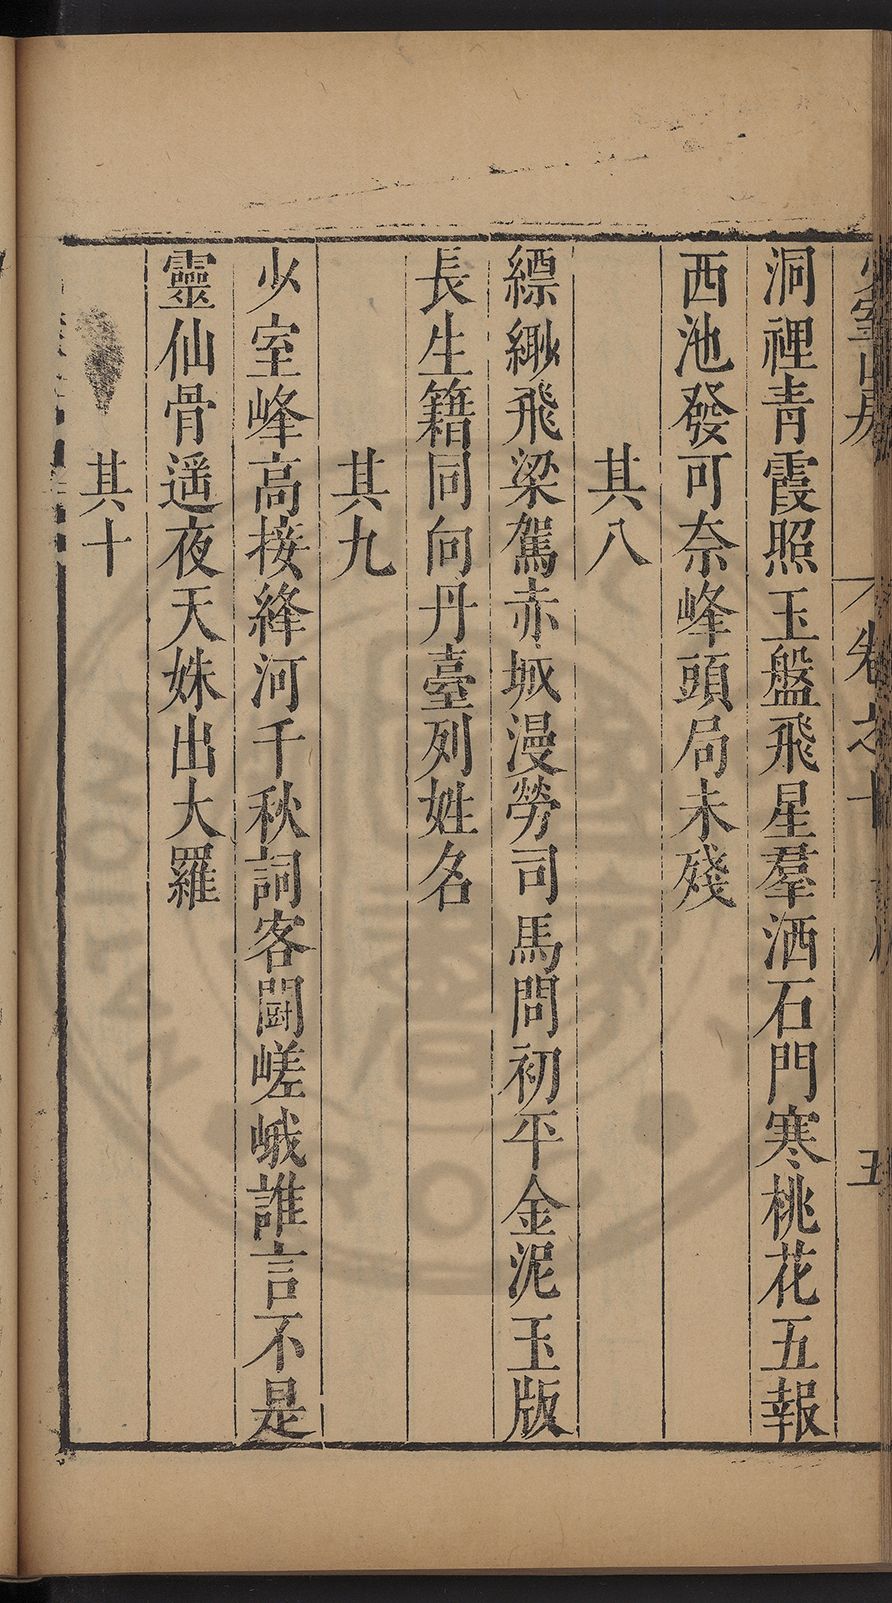 少室山房 卷之十 五
洞裡青霞照玉盤飛星羣洒石門寒桃花五報
西池發可奈峰頭局未殘
其八
縹緲飛梁駕赤城漫勞司馬問初平金泥玉版
長生籍同向丹臺列姓名
其九
少室峰高接絳河千秋詞客鬪嵯峨誰言不是
靈仙骨遥夜天姝出大羅
其十